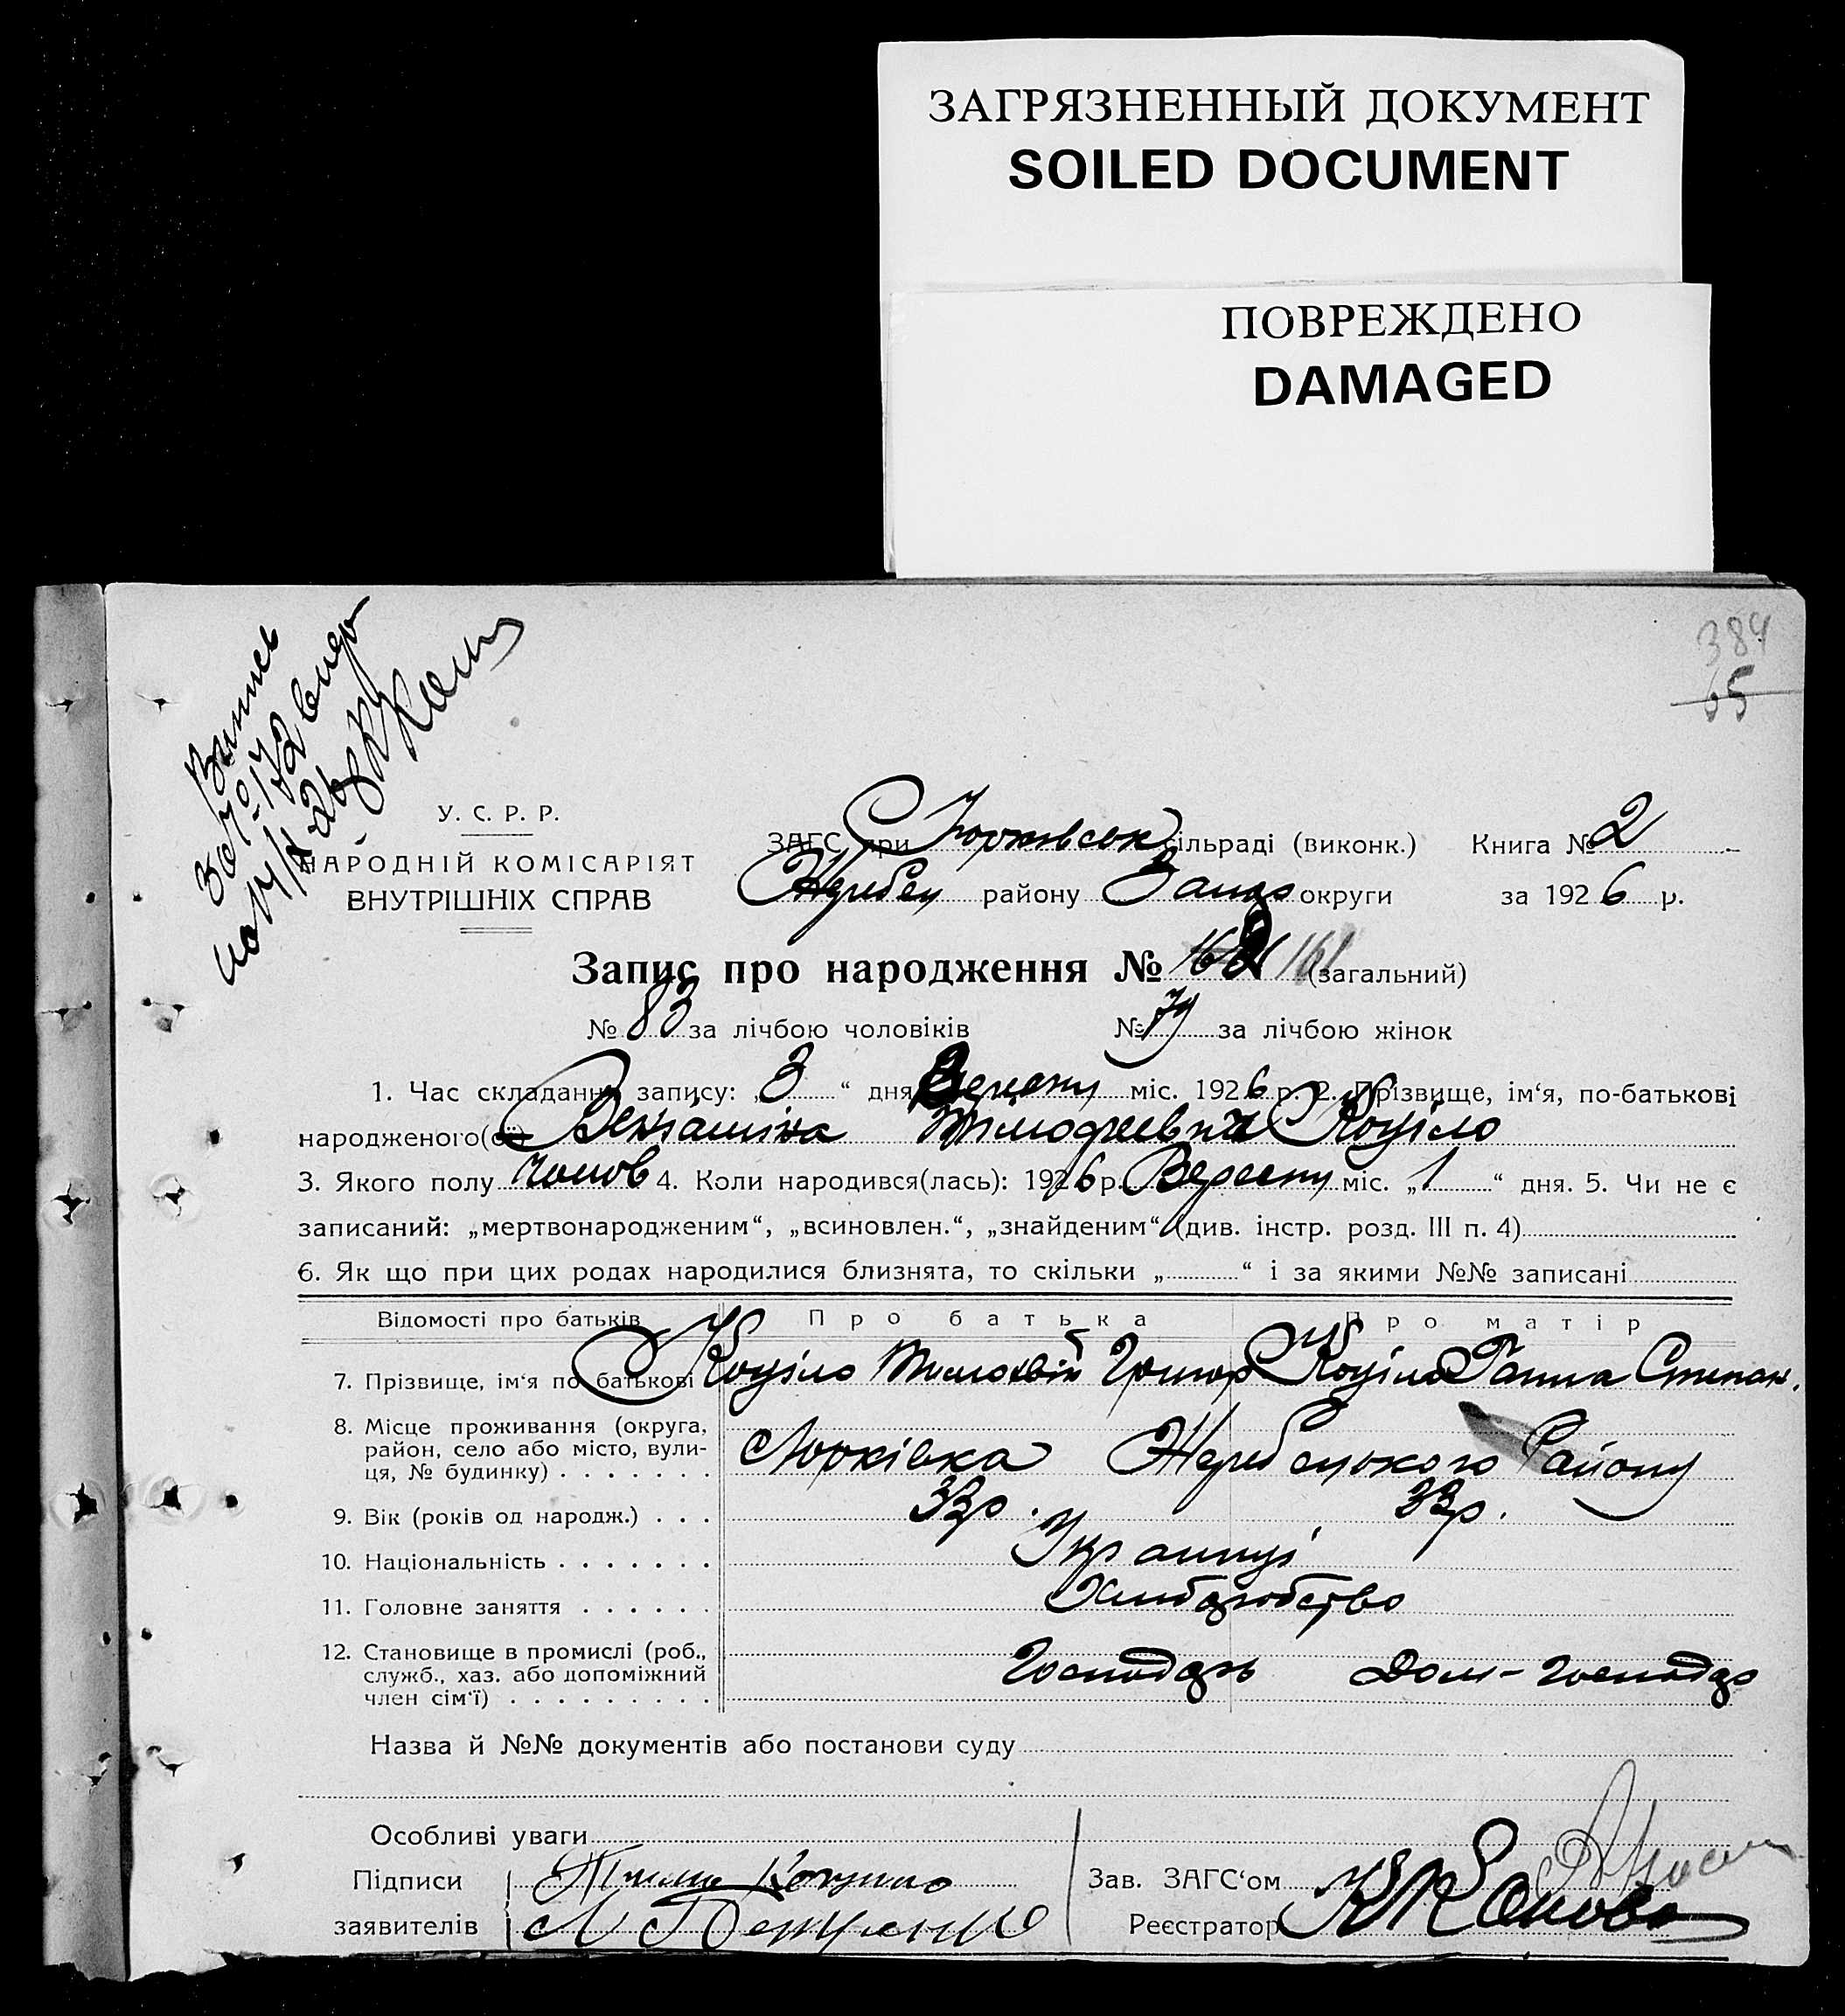 ЗАГРЯЗНЕННЫЙ ДОКУМЕНТ
SOILED DOCUMENT
ПОВРЕЖДЕНО
DAMAGED
384
65
Випись
У. С. Р. Р.
НАРОДНІЙ КОМІСАРІЯТ
ВНУТРІШНІХ СПРАВ
ЗАГС при Юрківськ сільраді (виконк.) Книга № 2
Жереб району Запор округи за 1926 р.
Запис про народження № 161 (загальний)
№ 83 за лічбою чоловіків № 79 за лічбою жінок
1. Час складання запису: „ 3 “ дня Вересня міс. 1926 р. 2. Прізвище, ім‘я, по-батькові
народженого(ої) Веніаміна Тімофеевич Коціло
3. Якого полу чолов 4. Коли народився(лась): 1926 р. Вересня міс. „ 1 “ дня. 5. Чи не є
записаний: „мертвонародженим“, „всиновлен.“, „знайденим“ (див. інстр. розд. III п. 4)
6. Як що при цих родах народилися близнята, то скільки „ “ і за якими №№ записані
Відомості про батьків Про батька Про матір
7. Прізвище, ім‘я по батькові Коціло Тимохвій Григор Коціло Ганна Степан.
8. Місце проживання (округа, район, село або місто, вулиця, № будинку) Юрківка Жеребецького Району
9. Вік (років од народж.) 33р. 33р.
10. Національність Українці
11. Головне заняття Хліборобство
12. Становище в промислі (роб., служб., хаз. або допоміжний член сім‘ї) Господарь Дом-господар
Назва й №№ документів або постанови суду
Особливі уваги
Підписи
заявителів
Зав. ЗАГС‘ом
Реєстратор